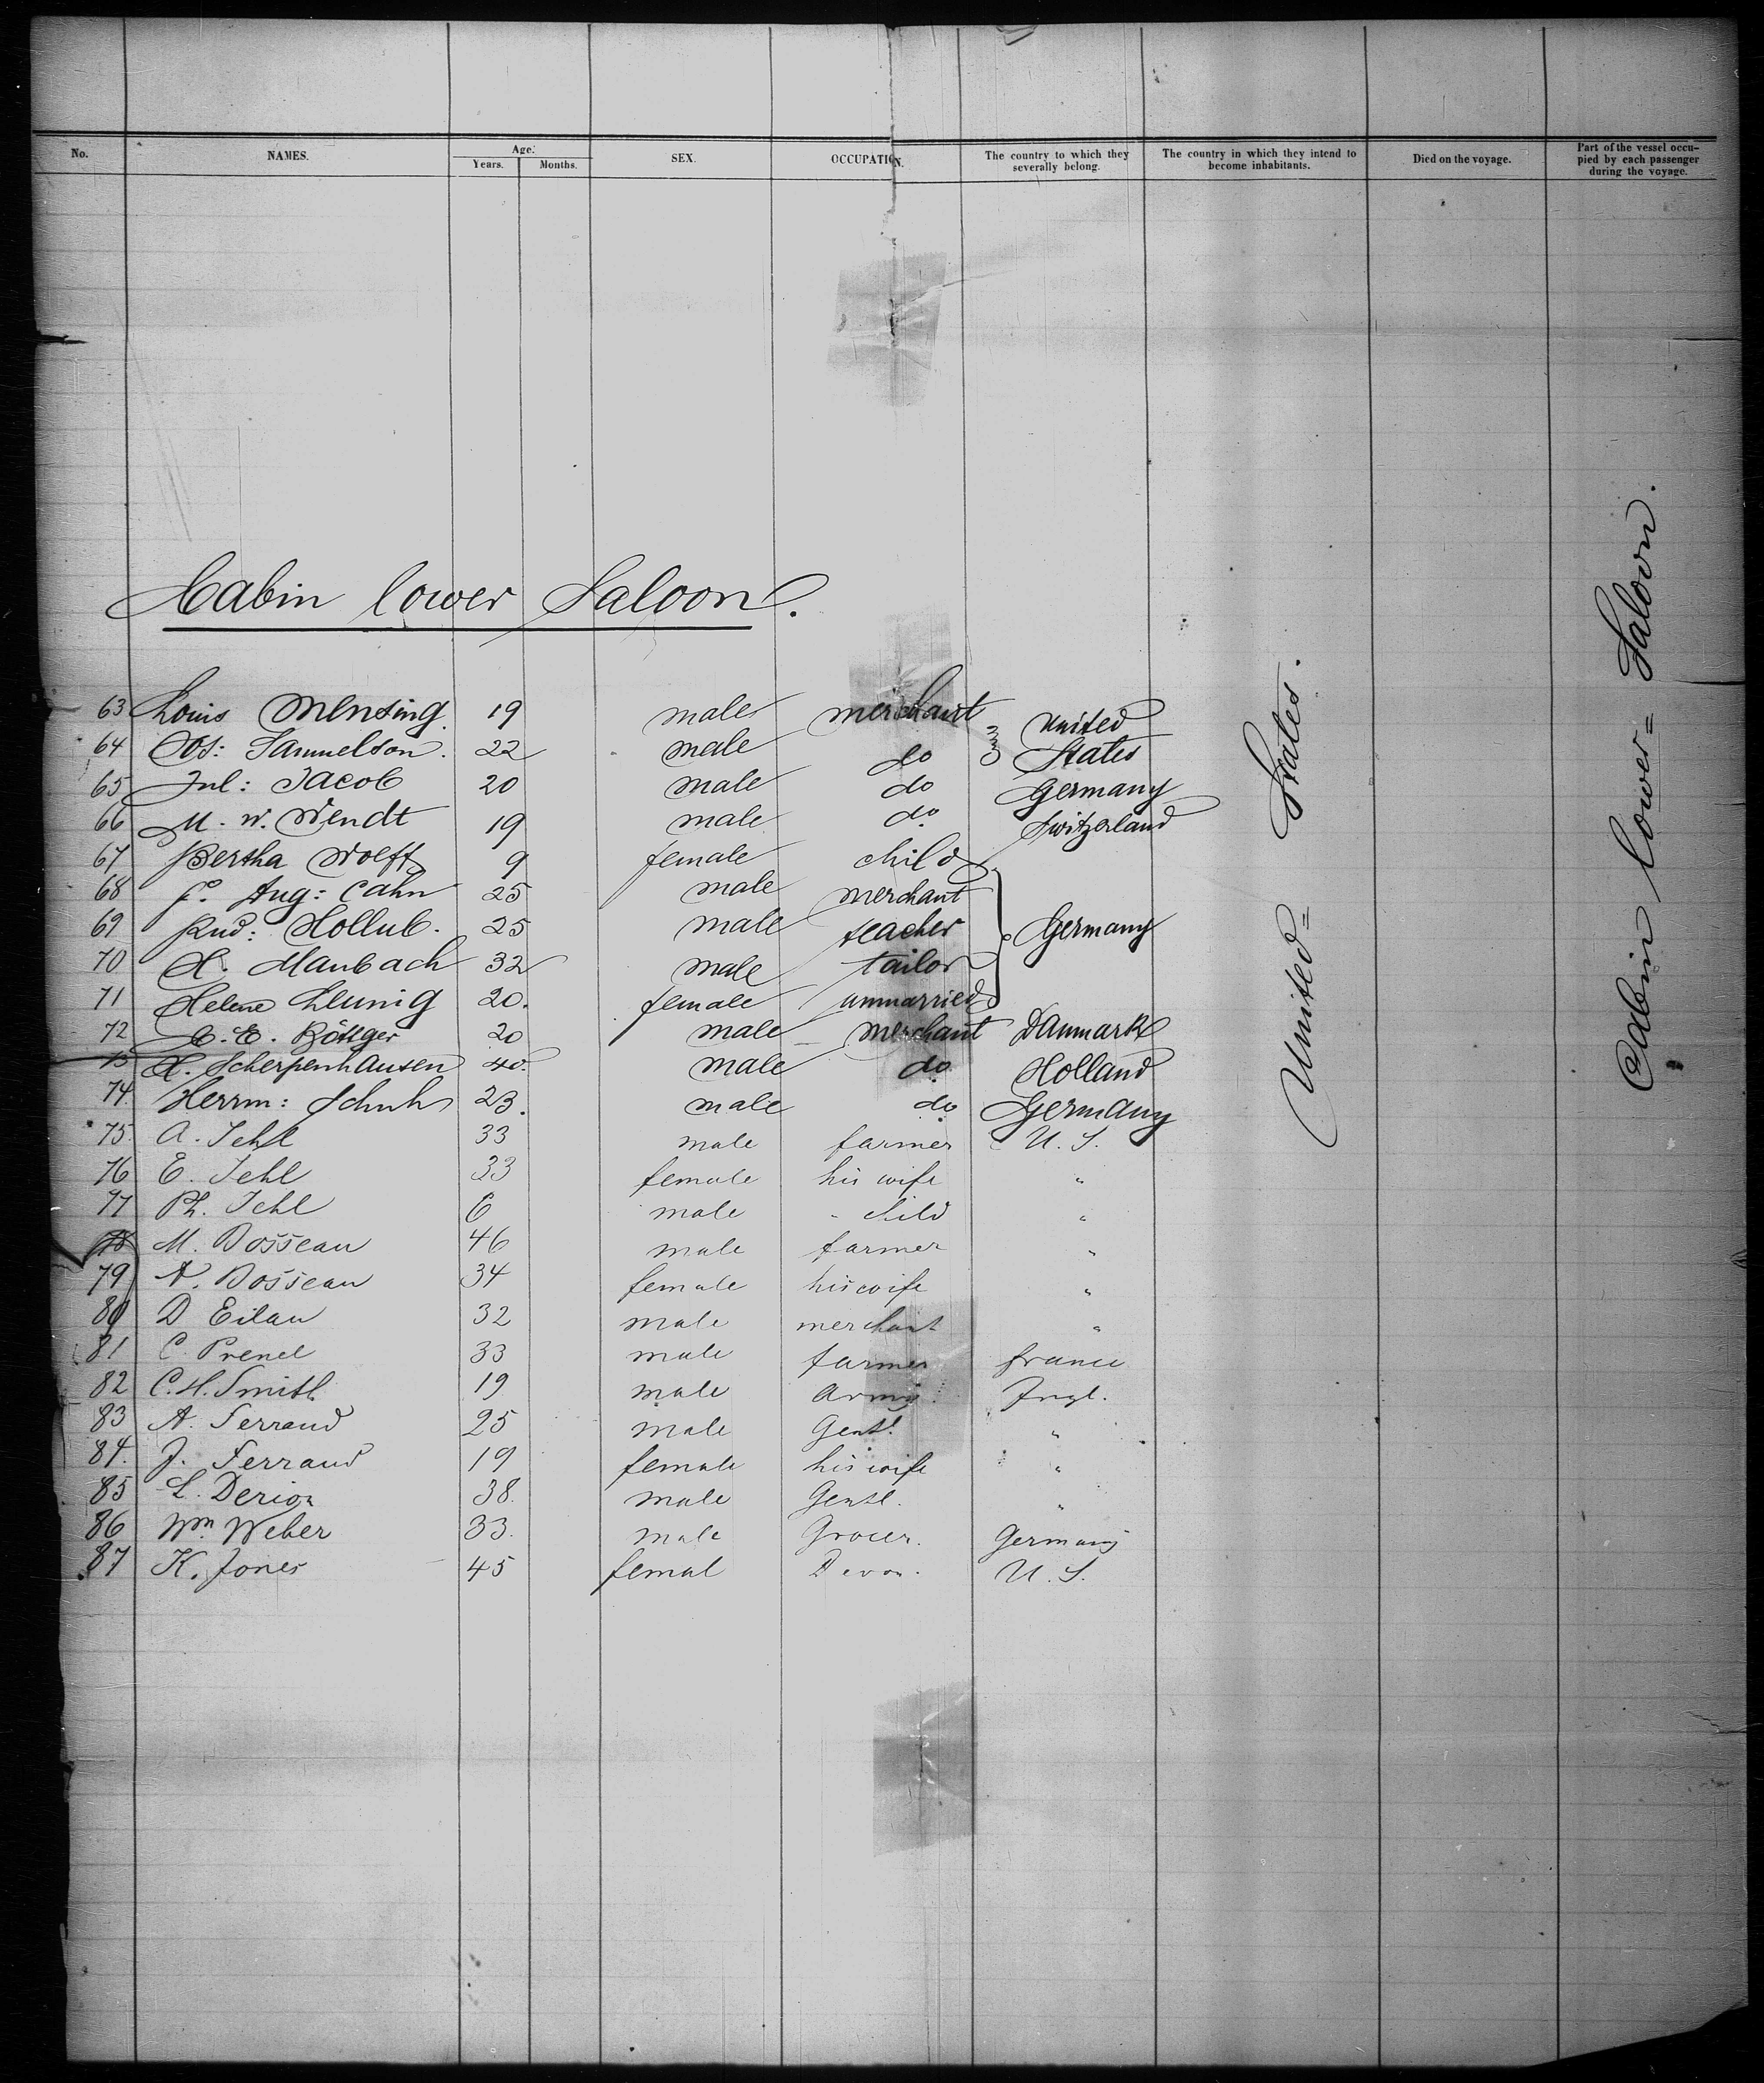 No. NAMES. Age. Years. Months. SEX. OCCUPATION. The country to which they severally belong. The country in which they intend to become inhabitants. Died on the voyage. Part of the vessel occupied by each passenger during the voyage.
Cabin lower Saloon.
63 Louis Mensing. 19 male merchant United
64 Os: Samuelson. 22 male do States
65 Jul: Jacob 20 male do Germany
66 M. W. Wendt 19 male do Switzerland
67 Bertha Wolff 9 female child
68 F. Aug: Cahn 25 male merchant
69 Rud: Hollub. 25 male teacher Germany
70 H. Maubach 32 male tailor
71 Helene Leunig 20. female unmarried
72 C. E. Böttger 20 male merchant Danmark
73 H. Scherpenhausen 40. male do Holland
74. Herrm: Schuh 23. male do Germany
75. A. Jehl 33 male farmer U. S.
76 E. Jehl 33 female his wife "
77 Ph. Jehl 6 male " child "
78 M. Bosseau 46 male farmer "
79 A. Bosseau 34 female his wife "
80 D Eilau 32 male merchant "
81 C. Prenel 33 male farmer france
82 C. H. Smith 19 male Army. Ingl.
83 A. Ferrand 25 male Gentl. "
84. J. Ferrand 19 female his wife "
85 L. 38. male Gentl. "
86 Wm. Weber 33. male Grocer. Germany
87 K. Jones 45 femal U. S.
United= States.
Cabin lower= Saloon.